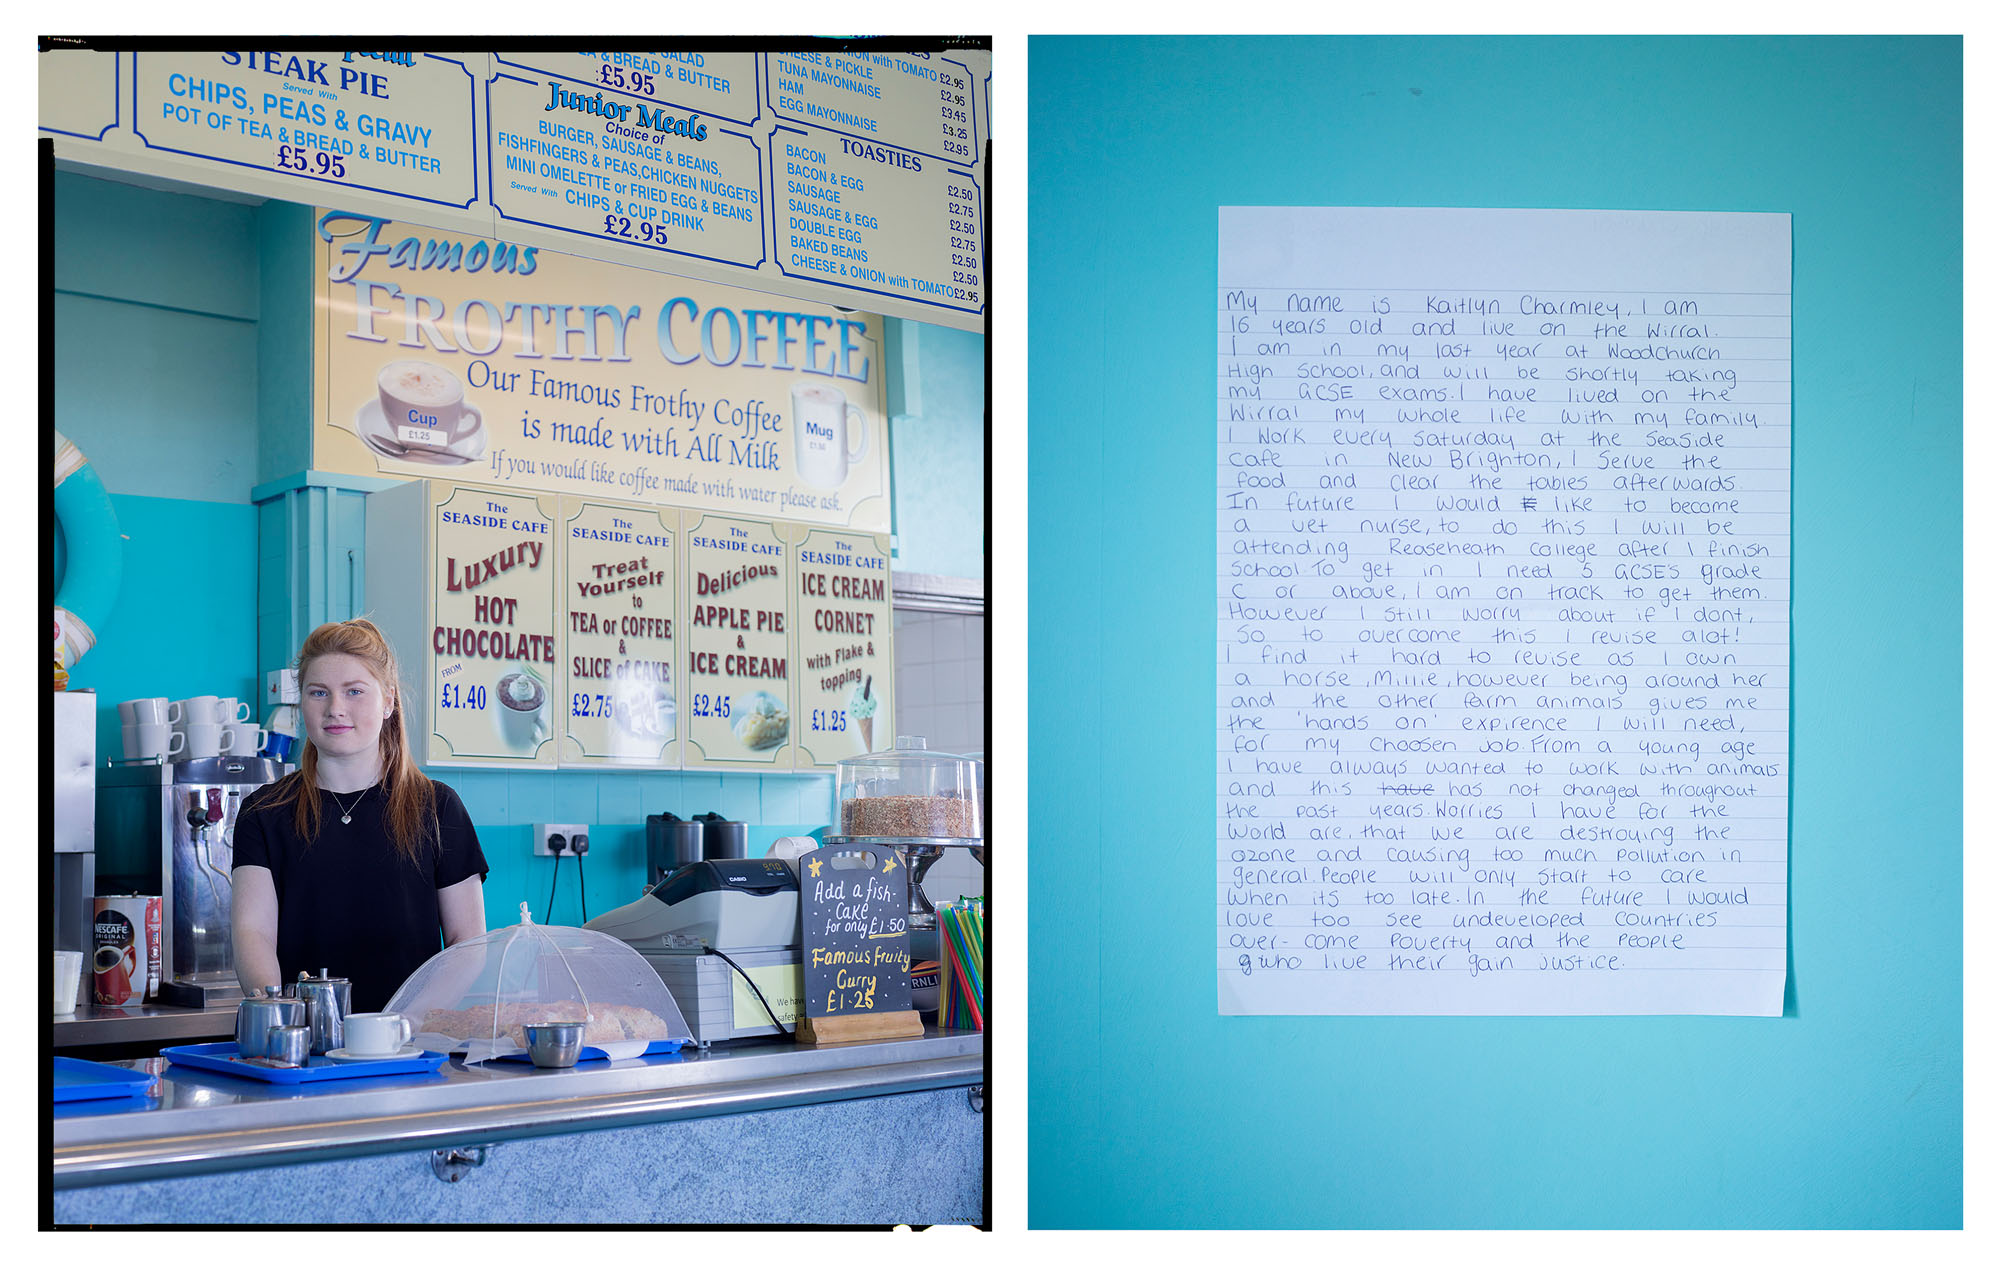 Special
STEAK PIE
Served With
CHIPS, PEAS & GRAVY
POT OF TEA & BREAD & BUTTER
£5.95
& SALAD
TEA & BREAD & BUTTER
£5.95
Junior Meals
Choice of
BURGER, SAUSAGE & BEANS,
FISHFINGERS & PEAS,CHICKEN NUGGETS
MINI OMELETTE or FRIED EGG & BEANS
Served With CHIPS & CUP DRINK
£2.95
CHEESE & ONION with TOMATO £2.95
CHEESE & PICKLE £2.95
TUNA MAYONNAISE £3.45
HAM £3.25
EGG MAYONNAISE £2.95
TOASTIES
BACON £2.50
BACON & EGG £2.75
SAUSAGE £2.50
SAUSAGE & EGG £2.75
DOUBLE EGG £2.50
BAKED BEANS £2.50
CHEESE & ONION with TOMATO £2.95
Famous
FROTHY COFFEE
Our Famous Frothy Coffee
is made with All Milk
If you would like coffee made with water please ask.
Cup
£1.25
Mug
The
SEASIDE CAFE
Luxury
HOT
CHOCOLATE
FROM
£1.40
The
SEASIDE CAFE
Treat
Yourself
to
TEA or COFFEE
&
SLICE of CAKE
£2.75
The
SEASIDE CAFE
Delicious
APPLE PIE
&
ICE CREAM
£2.45
The
SEASIDE CAFE
ICE CREAM
CORNET
with Flake &
topping
£1.25
NESCAFÉ
ORIGINAL
CASIO
Add a fish-
cake
for only £1.50
Famous Fruity
Curry
£1.25
We have
safety
RNLI
My name is Kaitlyn Charmley, I am
16 years old and live on the Wirral.
I am in my last year at Woodchurch
High School, and will be shortly taking
my GCSE exams. I have lived on the
Wirral my whole life with my family.
I work every saturday at the seaside
cafe in New Brighton, I serve the
food and clear the tables afterwards.
In future I would like to become
a vet nurse, to do this I will be
attending Reaseheath college after I finish
school. To get in I need 5 GCSE's grade
C or above, I am on track to get them.
However I still worry about if I dont,
so to overcome this I revise alot!
I find it hard to revise as I own
a horse, Millie, however being around her
and the other farm animals gives me
the 'hands on' expirence I will need,
for my choosen job. From a young age
I have always wanted to work with animals
and this have has not changed throughout
the past years. Worries I have for the
world are, that we are destroying the
ozone and causing too much pollution in
general. People will only start to care
when its too late. In the future I would
love too see undeveloped countries
over-come poverty and the people
who live their gain justice.